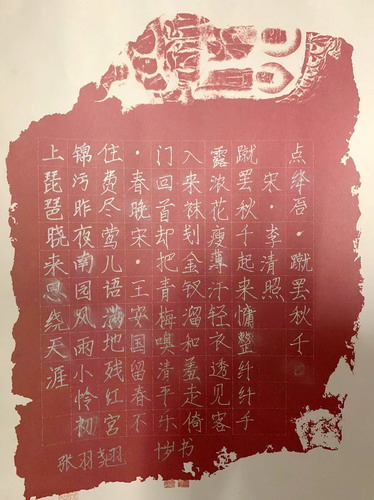 点绛唇·蹴罢秋千
宋·李清照
蹴罢秋千起来慵整纤纤手
露浓花瘦薄汗轻衣透见客
入来袜划金钗溜和羞走倚
门回首却把青梅嗅清平乐
·春晚宋·王安国留春不
住费尽莺儿语满地残红宫
锦污昨夜南园风雨小怜初
上琵琶晓来思绕天涯
张羽翘 抄书